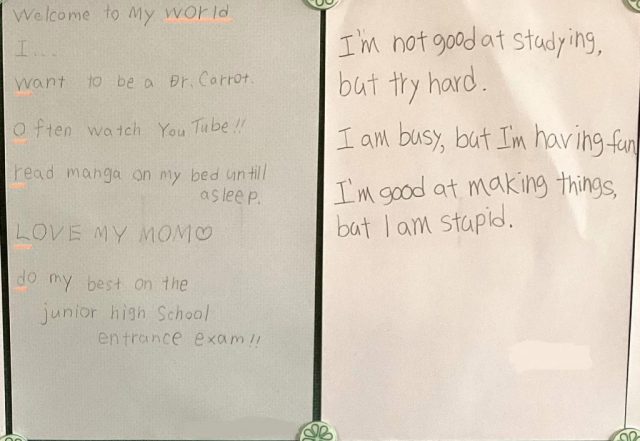 Welcome to My World
I...
want to be a Dr. Carrot.
Often watch YouTube!!
read manga on my bed untill
asleep.
LOVE MY MOM♡
do my best on the
junior high School
entrance exam!!
I'm not good at studying,
but try hard.
I am busy, but I'm having fun
I'm good at making things,
but I am stupid.